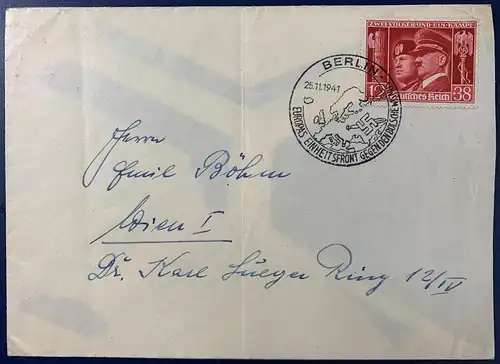 ZWEI VÖLKER UND EIN KAMPF
12 Deutsches Reich 38
BERLIN
25.11.1941
EUROPAS EINHEITSFRONT GEGEN DEN BOLSCHEWISMUS
Herrn
Emil Böhm
Wien I
Dr. Karl Lueger Ring 12/IV